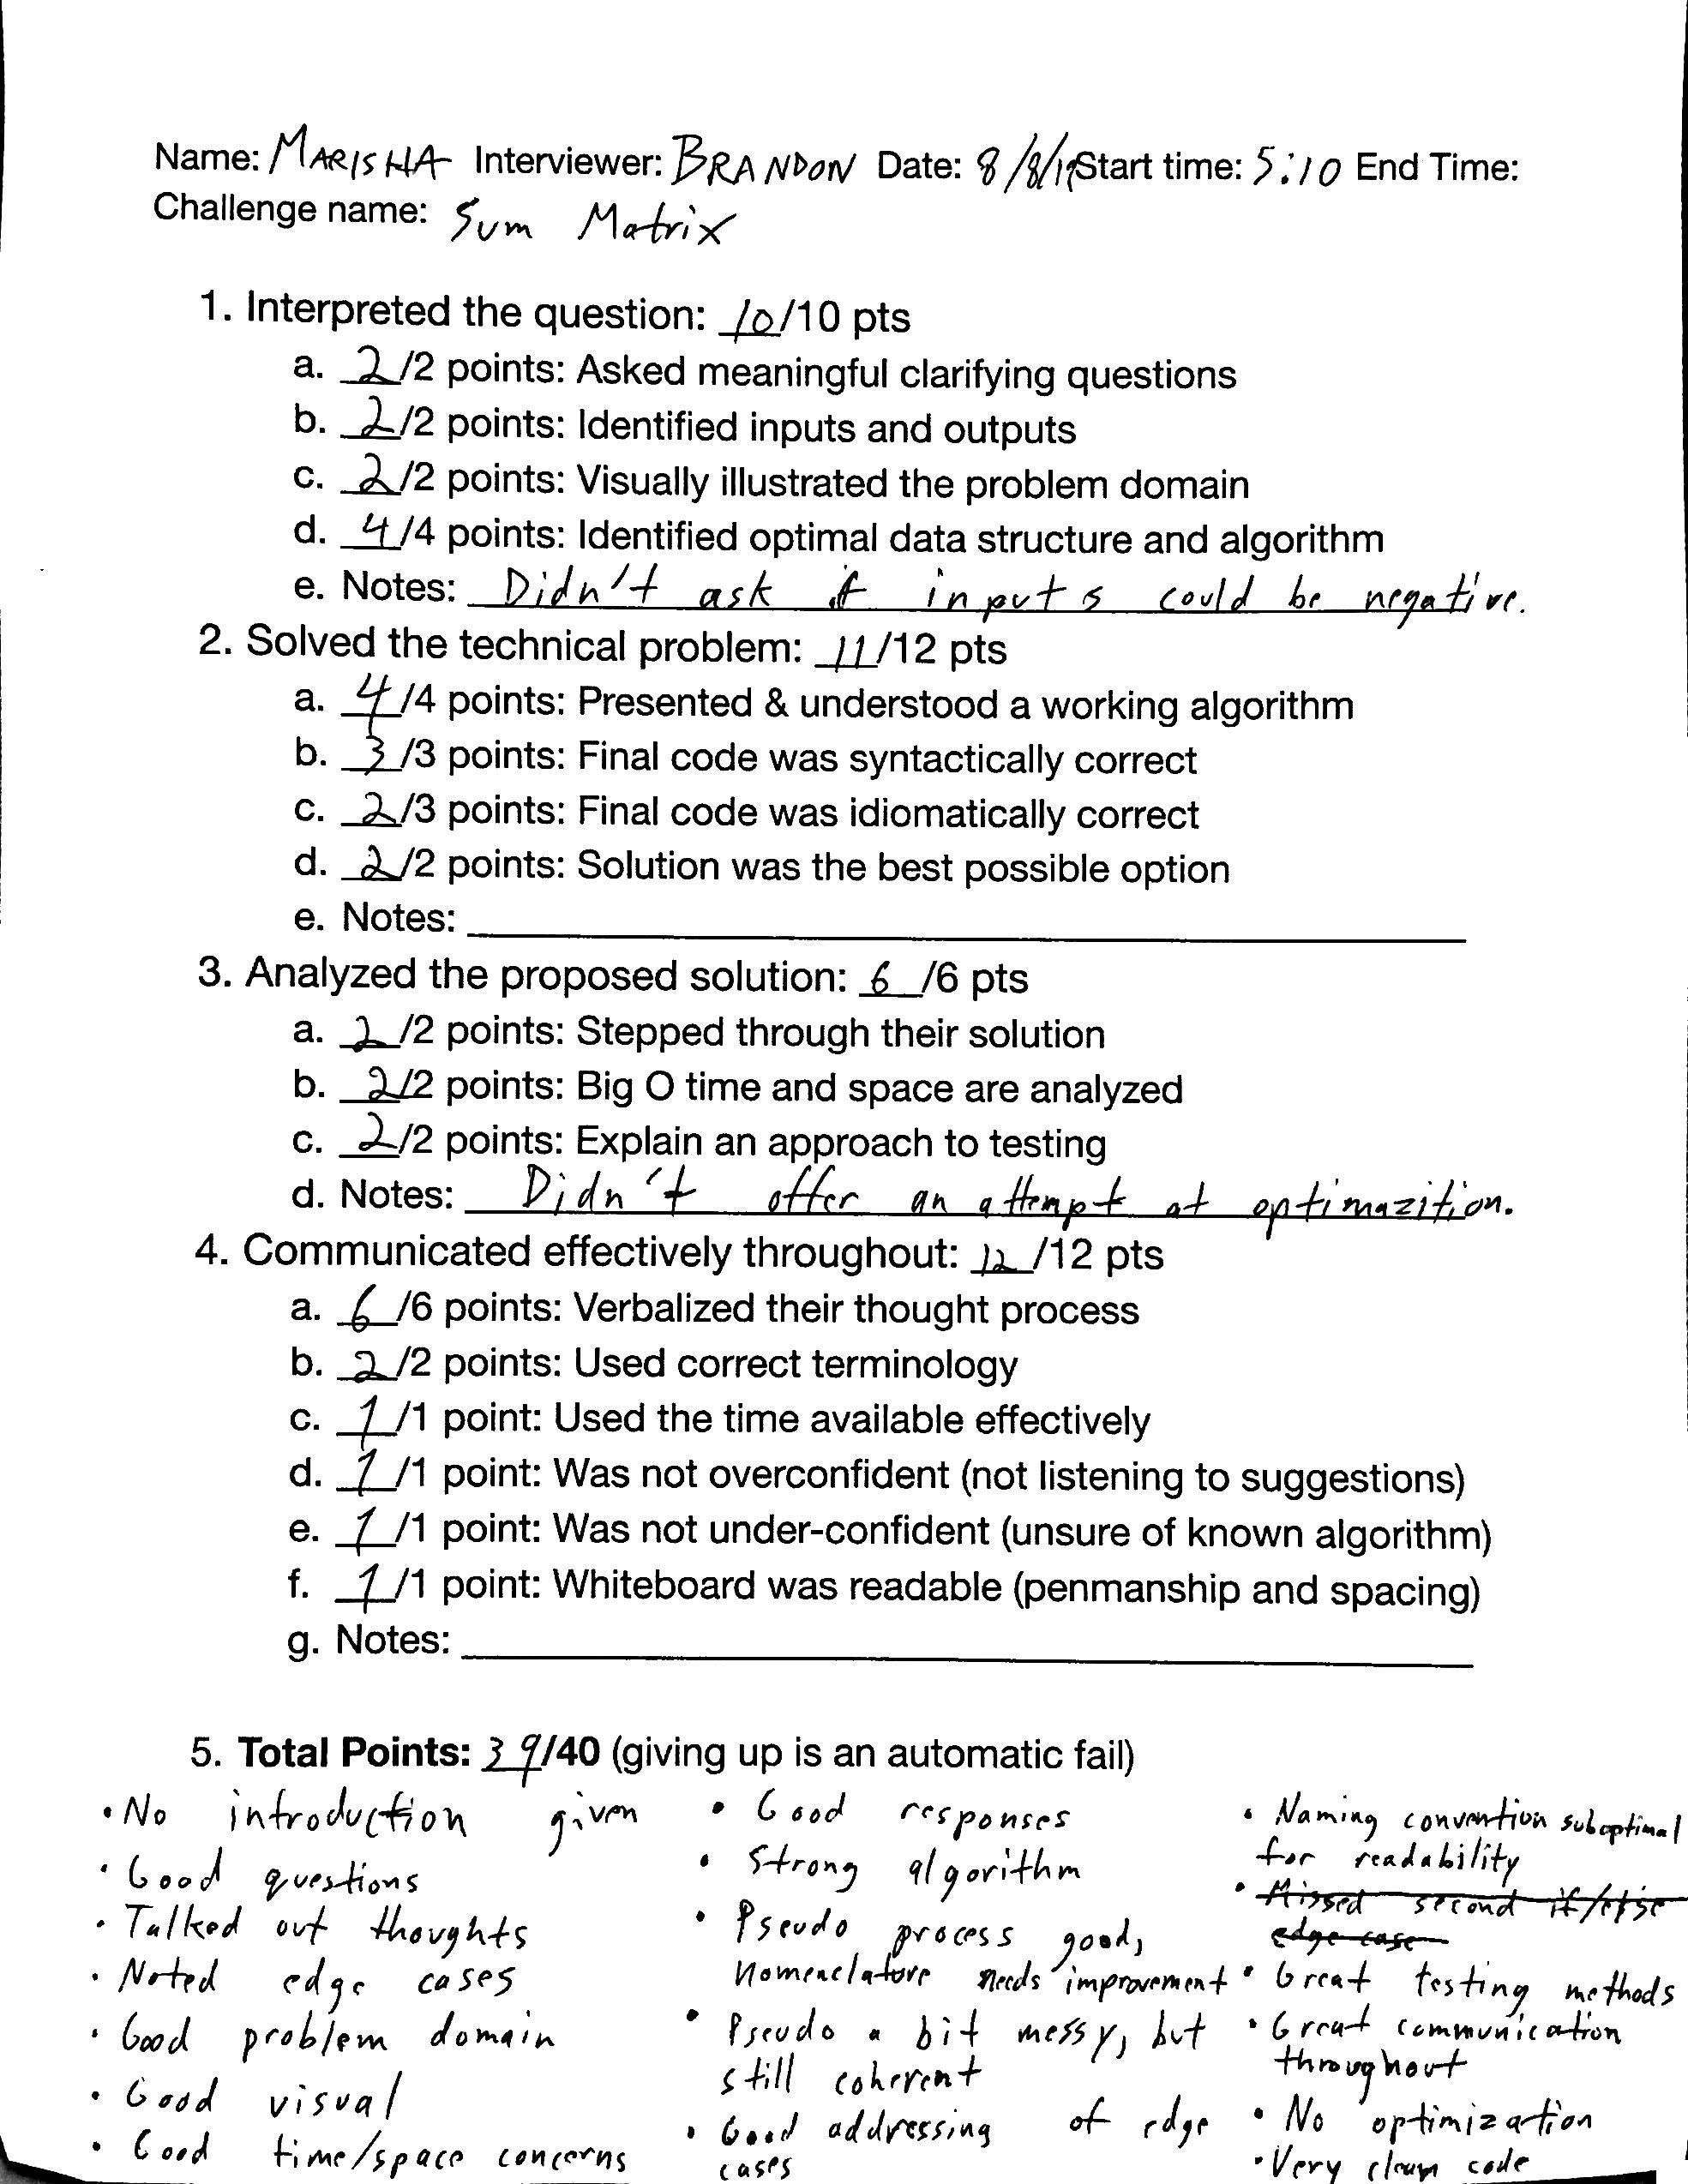 Name: MARISHA Interviewer: BRANDON Date: 8/8/19 Start time: 5:10 End Time:
Challenge name: Sum Matrix
1. Interpreted the question: 10/10 pts
a. 2/2 points: Asked meaningful clarifying questions
b. 2/2 points: Identified inputs and outputs
c. 2/2 points: Visually illustrated the problem domain
d. 4/4 points: Identified optimal data structure and algorithm
e. Notes: Didn't ask if inputs could be negative.
2. Solved the technical problem: 11/12 pts
a. 4/4 points: Presented & understood a working algorithm
b. 3/3 points: Final code was syntactically correct
c. 2/3 points: Final code was idiomatically correct
d. 2/2 points: Solution was the best possible option
e. Notes:
3. Analyzed the proposed solution: 6/6 pts
a. 2/2 points: Stepped through their solution
b. 2/2 points: Big O time and space are analyzed
c. 2/2 points: Explain an approach to testing
d. Notes: Didn't offer an attempt at optimazition.
4. Communicated effectively throughout: 12/12 pts
a. 6/6 points: Verbalized their thought process
b. 2/2 points: Used correct terminology
c. 1/1 point: Used the time available effectively
d. 1/1 point: Was not overconfident (not listening to suggestions)
e. 1/1 point: Was not under-confident (unsure of known algorithm)
f. 1/1 point: Whiteboard was readable (penmanship and spacing)
g. Notes:
5. Total Points: 39/40 (giving up is an automatic fail)
• No introduction given
• Good questions
• Talked out thoughts
• Noted edge cases
• Good problem domain
• Good visual
• Good time/space concerns
• Good responses
• Strong algorithm
• Pseudo process good,
Nomenclature needs improvement
• Pseudo a bit messy, but
still coherent
• Good addressing of edge
cases
• Naming convention suboptimal
for readability
• Missed second if/else
edge case
• Great testing methods
• Great communication
throughout
• No optimization
• Very clean code